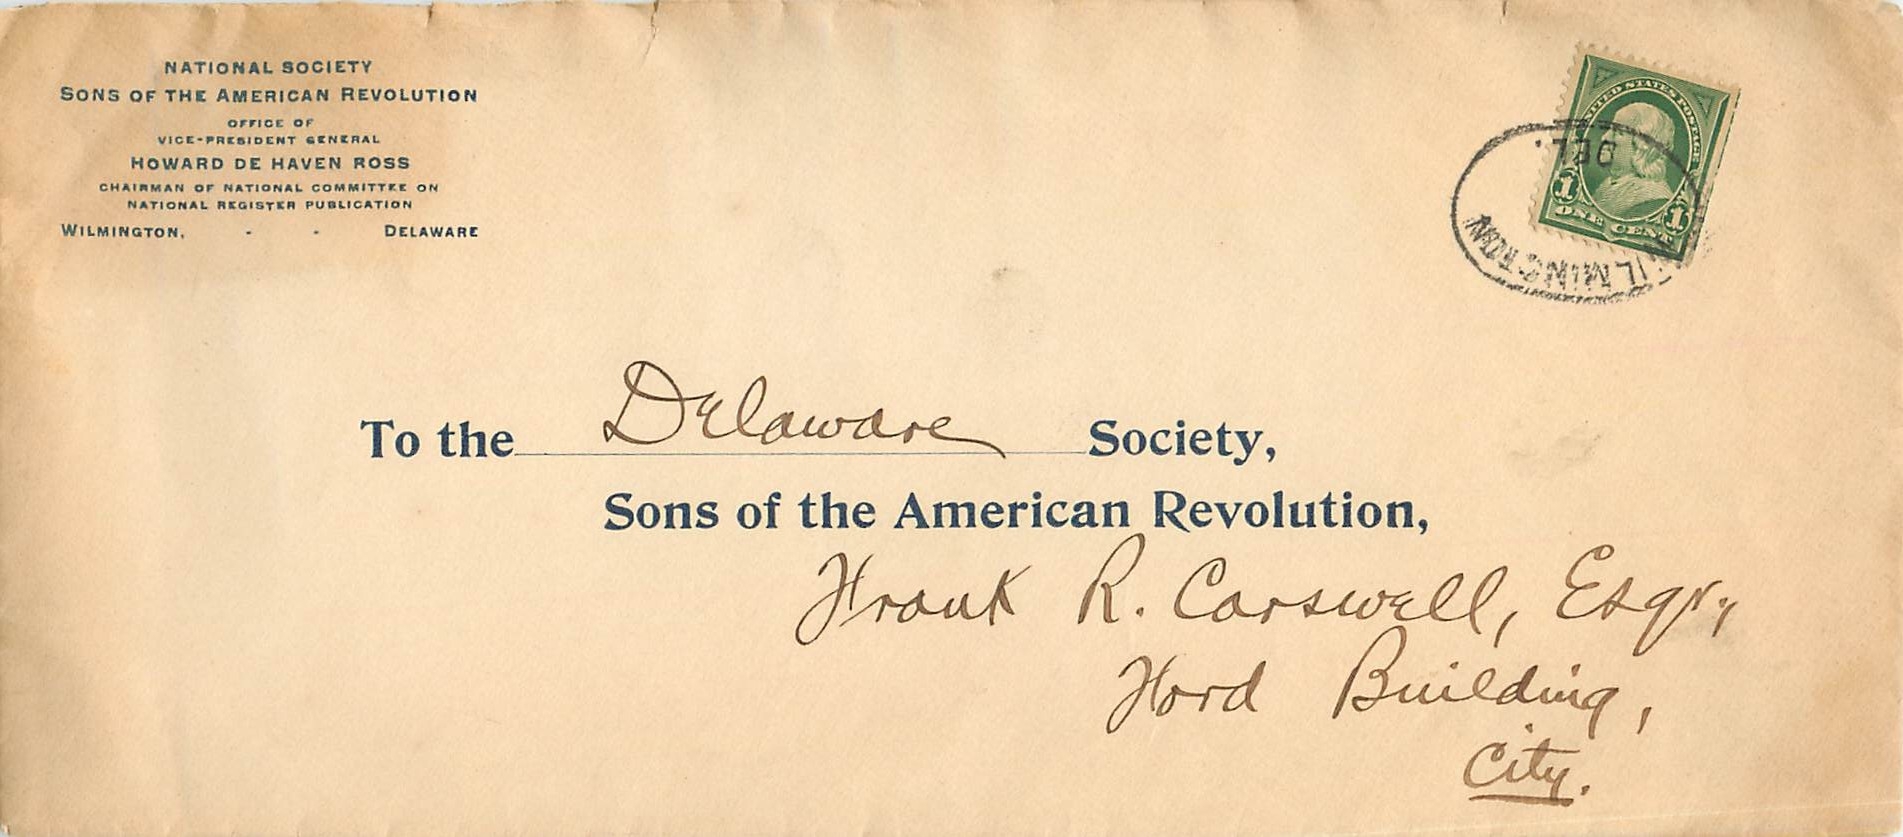 NATIONAL SOCIETY
SONS OF THE AMERICAN REVOLUTION
OFFICE OF
VICE-PRESIDENT GENERAL
HOWARD DE HAVEN ROSS
CHAIRMAN OF NATIONAL COMMITTEE ON
NATIONAL REGISTER PUBLICATION
WILMINGTON, - - DELAWARE
UNITED STATES POSTAGE
1 1
ONE CENT
WILMINGTON
DEL.
To the Delaware Society,
Sons of the American Revolution,
Frank R. Carswell, Esqr.,
Ford Building,
City.